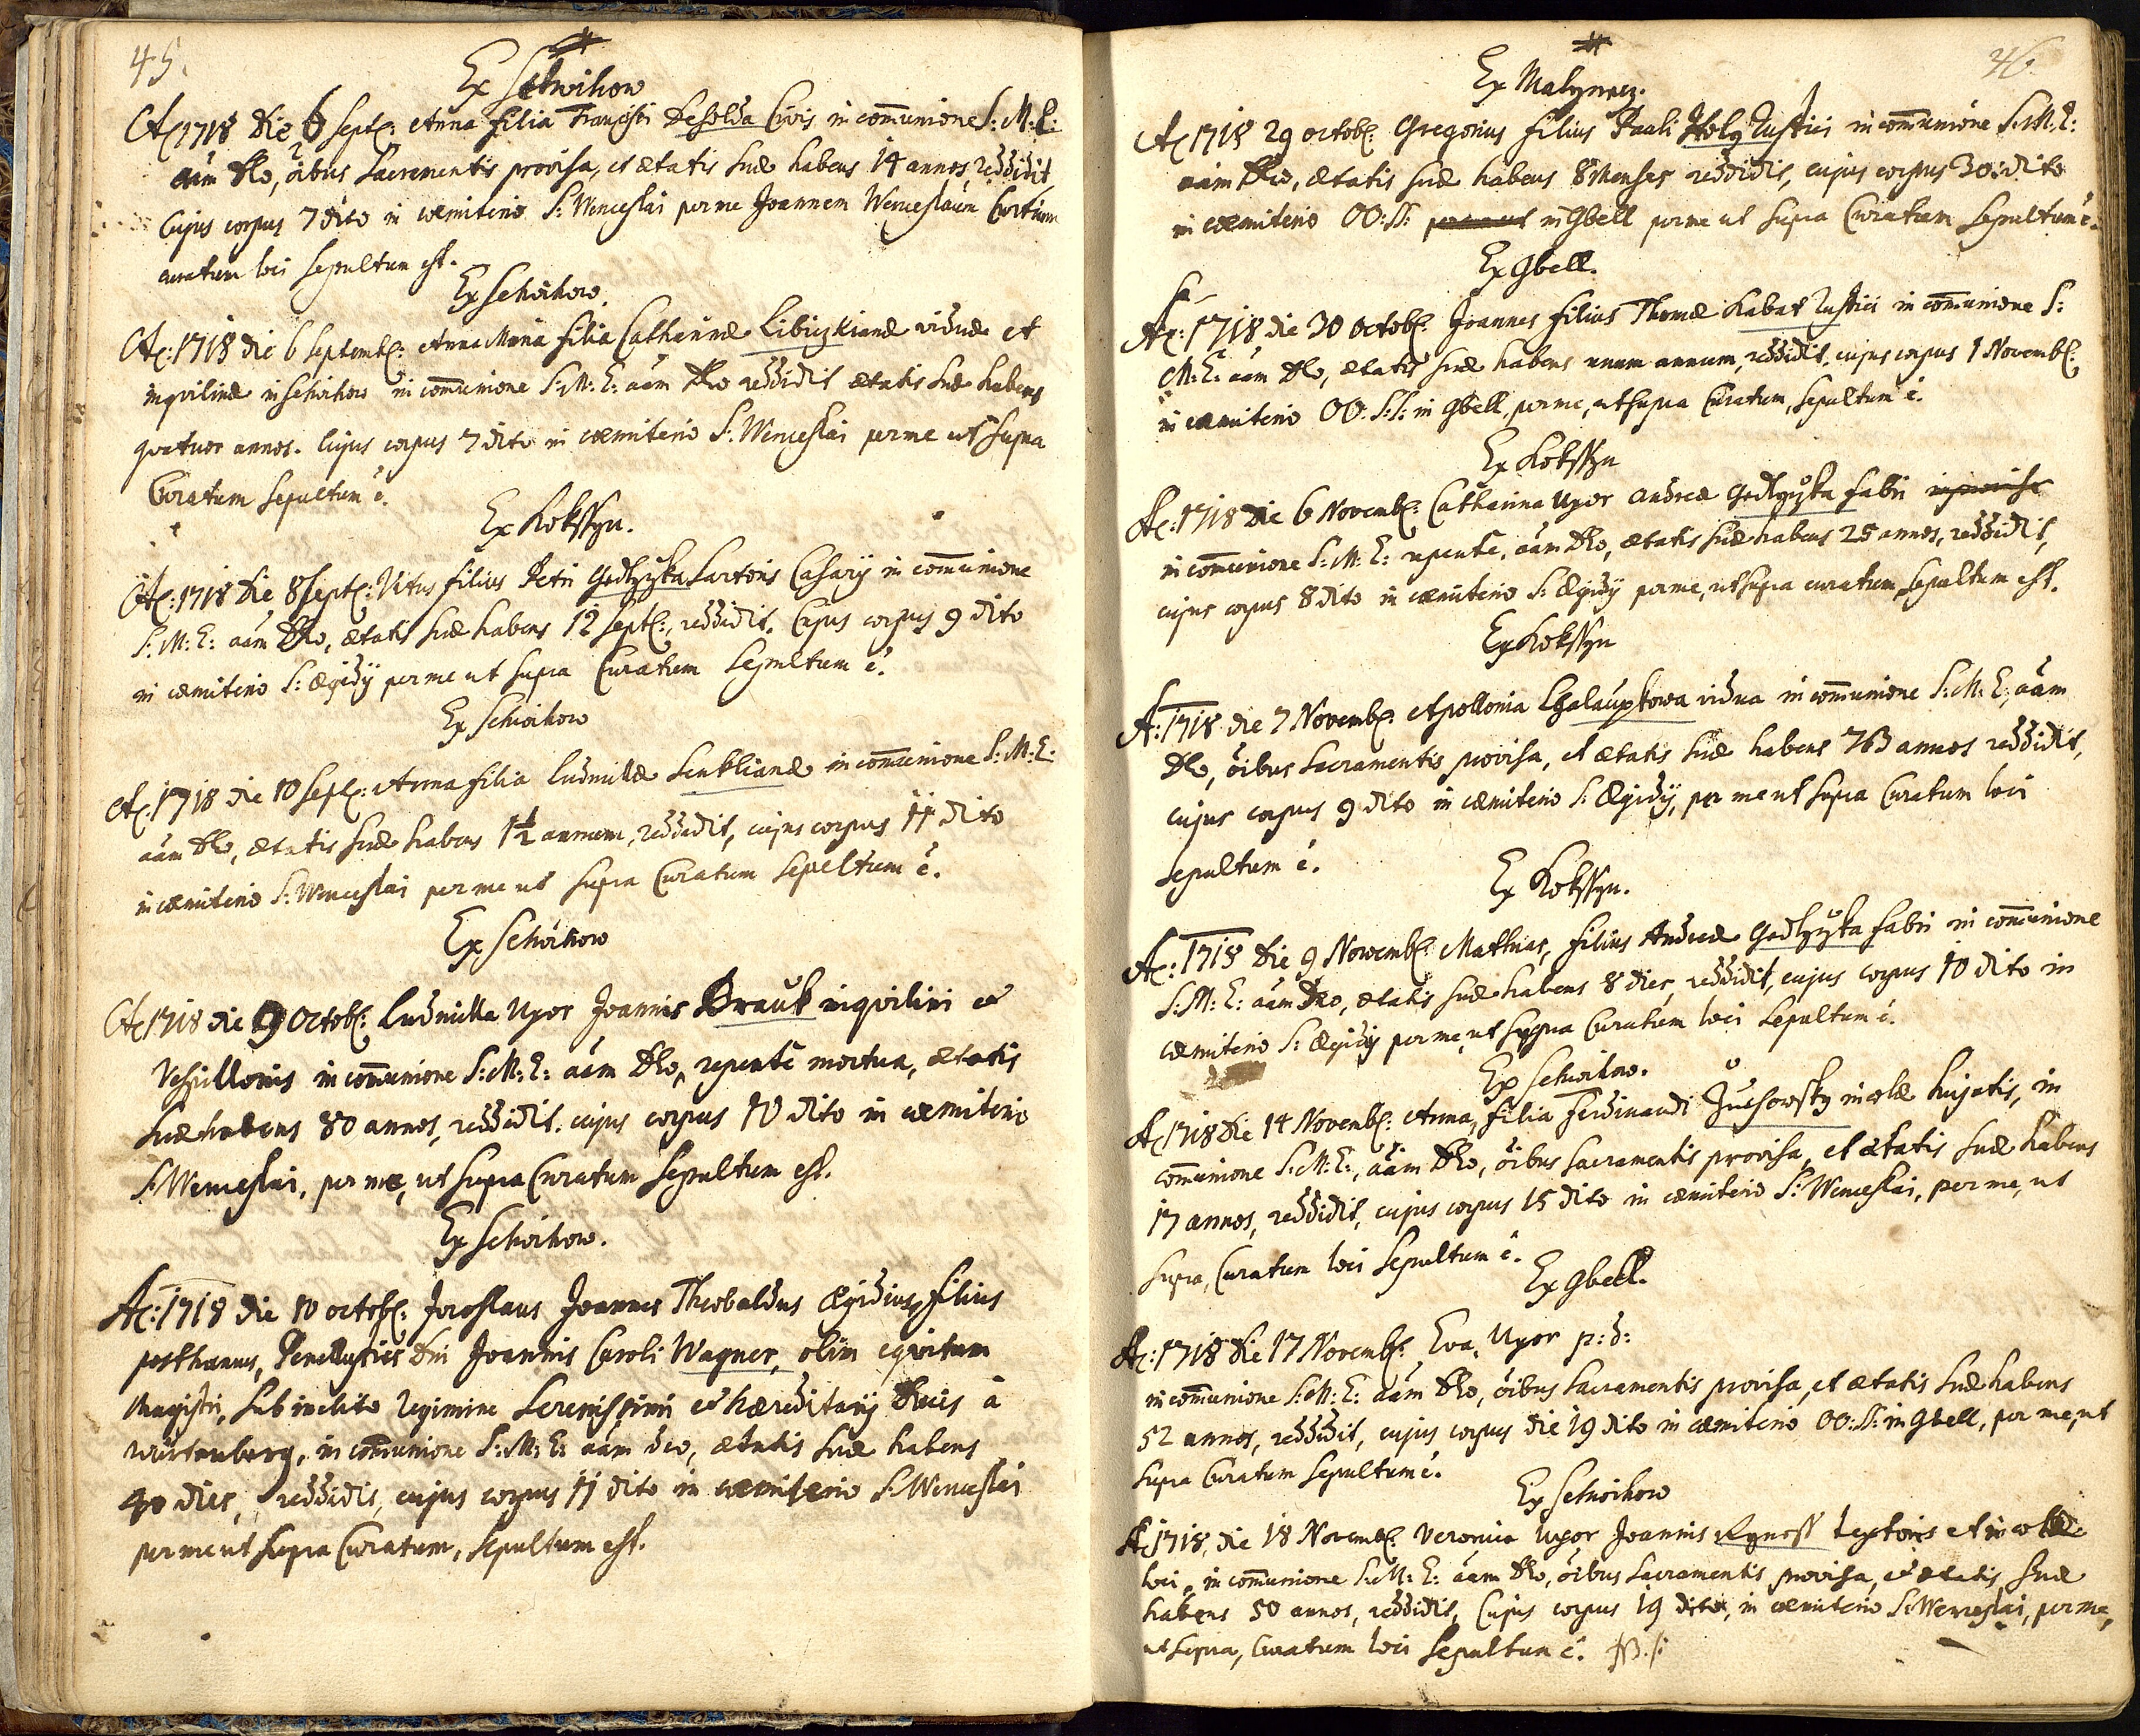 45.
Ex Schwihow
Aͦ 1718 die 6 Septͤ: Anna filia Francisci Desolda Civis in com̄unione S: M: E:
aām Dēo, oībus Sacramentis provisa, et ætatis suæ habens 14 annos, reddidit,
Cujus corpus 7 dito in cæmiterio S: Wenceslai per me Joannem Wenceslaum
curatum loci sepultum est.
Ex Schwihow.
Aͦ: 1718 die 6 Septembͤ: Anna Maria filia Catharinæ Libiczkianæ viduæ et
inquilinæ in Schwihow in com̄unione S: M: E: aām Dēo reddidit ætatis suæ habens
quatuor annos. Cujus corpus 7 dito in cæmiterio S: Wenceslai per me ut supra
Curatum sepultum ē.
Ex Kokssyn.
Aͦ: 1718 die 8 Septͤ: Vitus filius Petri Godlyka Sartoris Casarij in com̄unione
S: M: E: aām Dēo, ætatis suæ habens 12 Septͤ:, reddidit. Cujus corpus 9 dito
in cæmiterio S: Ægidij per me ut supra Curatum sepultum ē.
Ex Schwihow
Aͦ: 1718 die 10 Septͤ: Anna filia Ludmilæ Senklianæ in com̄unione S: M: E:
aām Dēo, ætatis suæ habens 1½ annum, reddidit, cujus corpus 11 dito
in cæmiterio S: Wenceslai per me ut supra Curatum sepultum ē.
Ex Schwihow
Aͦ 1718 die 9 Octobͤ: Ludmilla Uxor Joannis Brauk inquilini et
Vespillonis in com̄unione S: M: E: aām Dēo, repentè mortua, ætatis
suæ habens 80 annos, reddidit. cujus corpus 10 dito in cæmiterio
S: Wenceslai, per me, ut supra Curatum sepultum est.
Ex Schwihow.
Aͦ: 1718 die 10 octobͤ: Jaroslaus Joannes Theobaldus Ægidius, filius
posthumus, Dni Joannis Caroli Wagner, olim equitum
Magistri, sub inclito regimine Serenissimi et hæreditarij Ducis à
Würtenberg, in com̄unione S: M: E: aām deo, ætatis suæ habens
40 dies, reddidit, cujus corpus 11 dito in cæmiterio S: Wenceslai
per me ut supra Curatum, sepultum est.
46.
Ex Malynecz.
Aͦ 1718 29 octobͤ: Gregorius filius Pauli Holy Rustici in com̄unione S: M: E:
aām Dēo, ætatis suæ habens 8 menses reddidit, cujus corpus 30: dito
in cæmiterio OO: SS: in Gbell per me ut supra Curatum sepultum ē.
Ex Gbell.
Aͦ: 1718 die 30 octobͤ: Joannes filius Thomæ Kabat Rustici in com̄unione S:
M: E: aām Dēo, ætatis suæ habens unum annum, reddidit. cujus corpus 1 Novembͤ:
in cæmiterio OO: SS: in Gbell, per me, ut supra Curatum, sepultum ē.
Ex Kokssyn
Aͦ: 1718 die 6 Novembͤ: Catharina Uxor Andreæ Godlyka fabri
in com̄unione S: M: E: repentè, aām Dēo, ætatis suæ habens 25 annos, reddidit,
cujus corpus 8 dito in cæmiterio S: Ægidij per me, ut supra curatum, sepultum est.
Ex Kokssyn
Aͦ: 1718 die 7 Novembͤ: Apollonia Chalaupkowa vidua in com̄unione S: M: E: aām
Dēo, oībus Sacramentis provisa, et ætatis suæ habens 763 annos reddidit,
cujus corpus 9 dito in cæmiterio S: Ægidij, per me ut supra Curatum loci
sepultum ē.
Ex Kokssyn.
Aͦ: 1718 die 9 Novembͤ: Mathias, filius Andreæ Godlyka fabri in com̄unione
S: M: E: aām Dēo, ætatis suæ habens 8 dies, reddidit, cujus corpus 10 dito in
cæmiterio S: Ægidij per me, ut supra Curatum loci sepultum ē.
Ex Schwihow.
Aͦ 1718 die 14 Novembͤ: Anna, filia Ferdinandi incolæ hujatis, in
com̄unione S: M: E:, aām Dēo, oībus sacramentis provisa, et ætatis suæ habens
17 annos, reddidit, cujus corpus 15 dito in cæmiterio S: Wenceslai, per me, ut
supra, Curatum loci sepultum ē.
Ex Gbell.
Aͦ: 1718 die 17 Novembͤ: Eva, Uxor p: d:
in com̄unione S: M: E: aām Dēo, oībus sacramentis provisa, et ætatis suæ habens
52 annos, reddidit, cujus corpus die 19 dito in cæmiterio OO: SS: in Gbell, per me, ut
supra Curatum sepultum ē.
Ex Schwihow
Aͦ 1718, die 18 Novembͤ: Veronica Uxor Joannis Rynoss textoris et incolæ
loci, in com̄unione S: M: E: aām Dēo, oībus sacramentis provisa, et ætatis suæ
habens 50 annos, reddidit, Cujus corpus 19 dito, in cæmiterio S: Wenceslai, per me,
ut supra, Curatum loci sepultum ē.